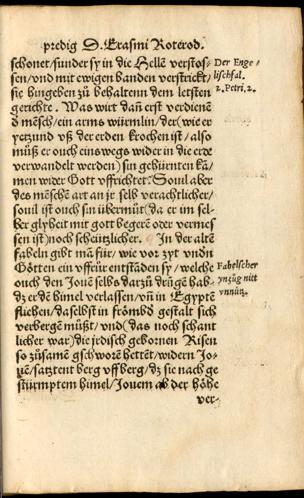 predig D. Erasmi Roterod.
schonet/sunder sy in die Hellē verstos-
sen/vnd mit ewigen banden verstrickt/
sie hingeben zů behaltenn dem letsten
gerichte. Was wirt dañ erst verdienē
ð mēsch/ein arms würmlin/der(wie er
yetzund vß der erden krochen ist/also
můß er ouch eins wegs wider in die erde
verwandelt werden)sin gehürnten kā/
men wider Gott vffrichtet? Souil aber
des mēschē art an jr selb verachtlicher/
souil ist ouch sin übermůt(da er im sel-
ber glyheit mit gott begere oder vermes
sen ist)noch scheützlicher. In der altē
fabeln gibt man für/wie vor zyt vndn
Götten ein vffrůr entstāden sy/welche
ouch den Jouē selbs darzů drūge hab-
dz er dē himel verlassen/vñ in Egyptē
fliehen/daselbst in frömbd gestalt sich
verbergē můßt/vnd(das noch schant
licher war)die jrdisch gebornen Risen
so zůsamē gschworē hettēt/widern Jo-
uē/satztent berg vff berg/dz sie nach ge
stürmptem himel/Jouem ab der höhe
ver-
Der Enge/
lisch fal.
2. Petri. 2.
Fabelscher
ynzüg nitt
vnnütz.